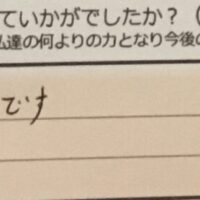 ていかがでしたか？（
払達の何よりの力となり今後の
です